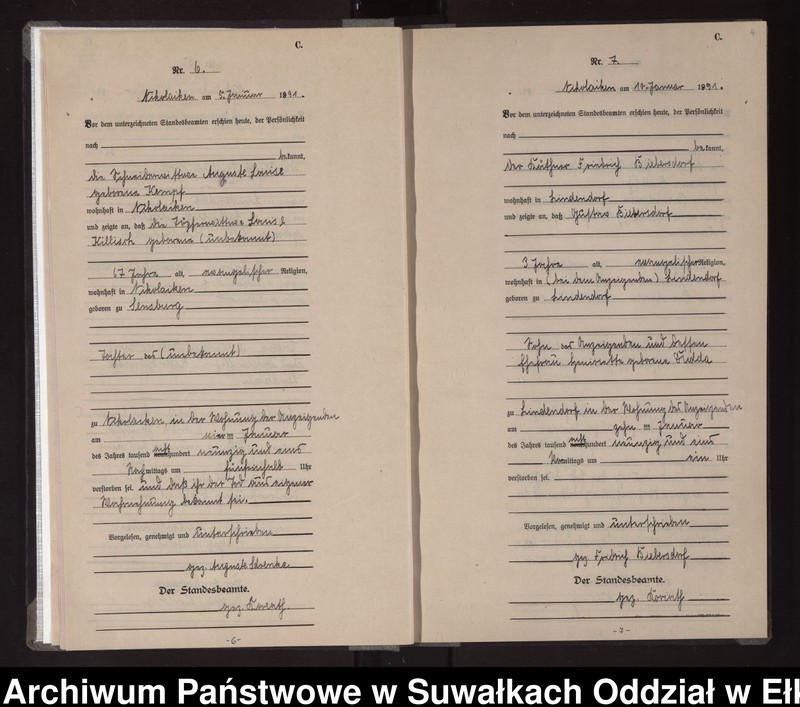 C.
Nr. 6.
Nikolaiken am 5. Januar 1891.
Vor dem unterzeichneten Standesbeamten erschien heute, der Persönlichkeit
nach
bekannt,
die Schneiderwittwe Auguste Louise
geborene Kempf
wohnhaft in Nikolaiken
und zeigte an, daß die Töpferwittwe Louise
Killisch geborene (unbekannt)
67 Jahre alt, evangelischer Religion,
wohnhaft in Nikolaiken
geboren zu Sensburg
Tochter des (unbekannt)
zu Nikolaiken, in der Wohnung der Anzeigenden
am vierten Januar
des Jahres tausend achthundert neunzig und eins
Nachmittags um fünfeinhalb Uhr
verstorben sei. und daß ihr der Tod aus eigener
Wahrnehmung bekannt sei.
Vorgelesen, genehmigt und unterschrieben
gez. Auguste
Der Standesbeamte.
gez. Korinth
-6-
C.
4
Nr. 7.
Nikolaiken am 12. Januar 1891.
Vor dem unterzeichneten Standesbeamten erschien heute, der Persönlichkeit
nach
bekannt,
der Käthner Friedrich Biebersdorf
wohnhaft in Lindendorf
und zeigte an, daß Gustav Biebersdorf
3 Jahre alt, evangelischer Religion,
wohnhaft in (bei dem Anzeigenden) Lindendorf
geboren zu Lindendorf
Sohn des Anzeigenden und dessen
Ehefrau Henriette geborene
zu Lindendorf in der Wohnung des Anzeigenden
am zehn ten Januar
des Jahres tausend achthundert neunzig und eins
Vormittags um ein Uhr
verstorben sei.
Vorgelesen, genehmigt und unterschrieben
gez. Friedrich Biebersdorf
Der Standesbeamte.
gez. Korinth
-7-
Archiwum Państwowe w Suwałkach Oddział w Ełk